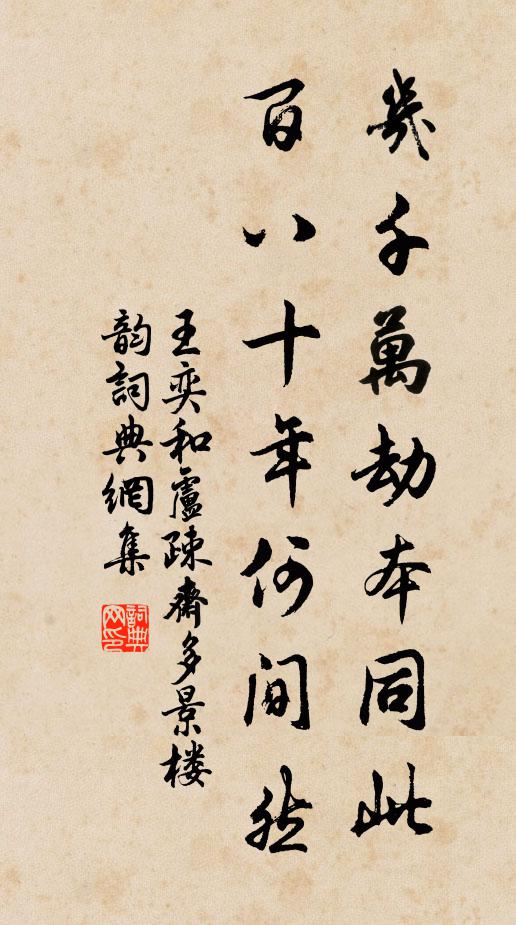 幾千萬劫本同此
百八十年何間然
王奕和盧疎齋多景楼
韵詞典網集
詞典网印